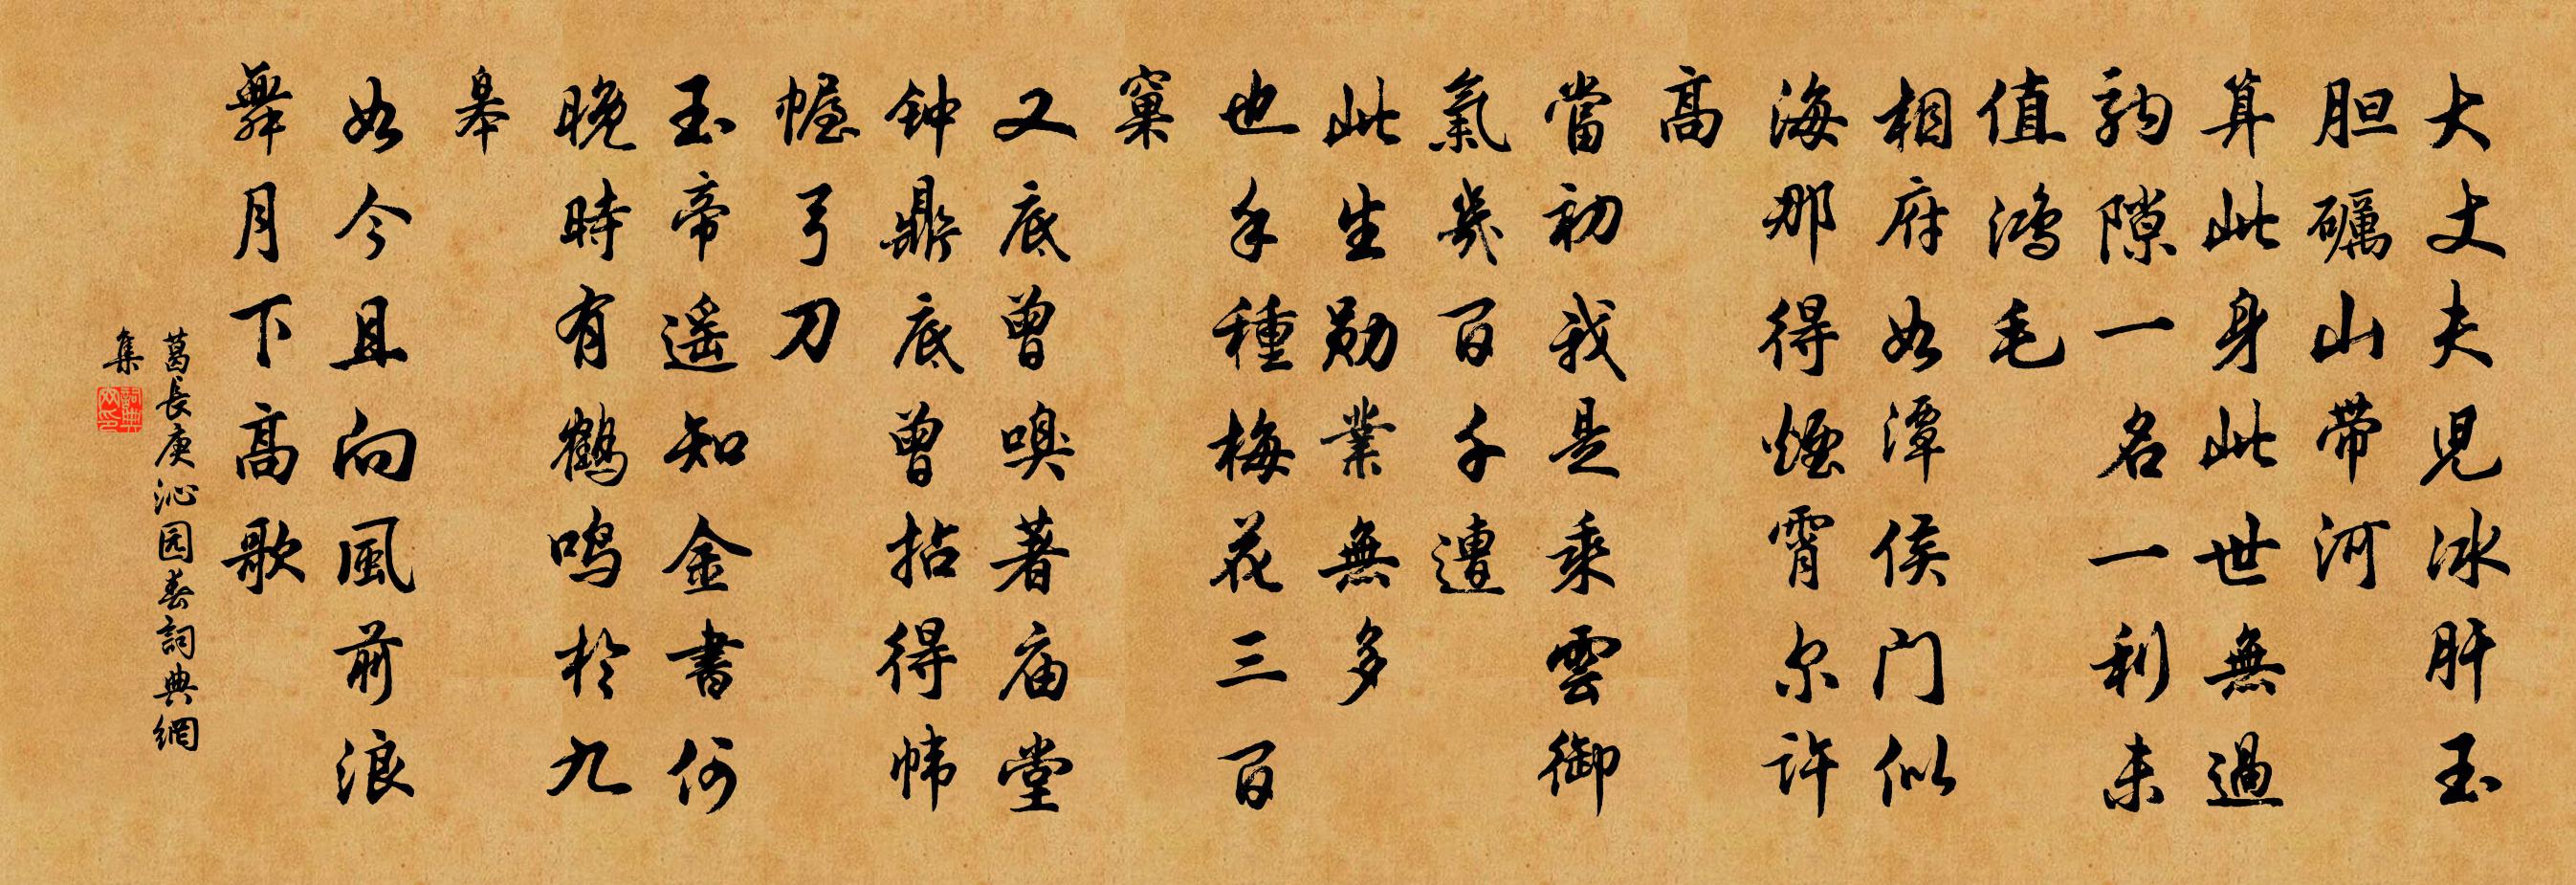 大丈夫兒冰肝玉
胆礪山带河
算此身此世無過
駒隙一名一利未
值鸿毛
相府如潭侯门似
海那得煙霄尔許
高
當初我是乘雲御
氣幾百千遭
此生勋業無多
也手種梅花三百
窠
又底曾嗅著庙堂
钟鼎底曾拈得帏
幄弓刀
玉帝遥知金書何
晚時有鶴鳴於九
皋
如今且向風前浪
舞月下高歌
葛長庚沁园春詞典網
集
詞典网印